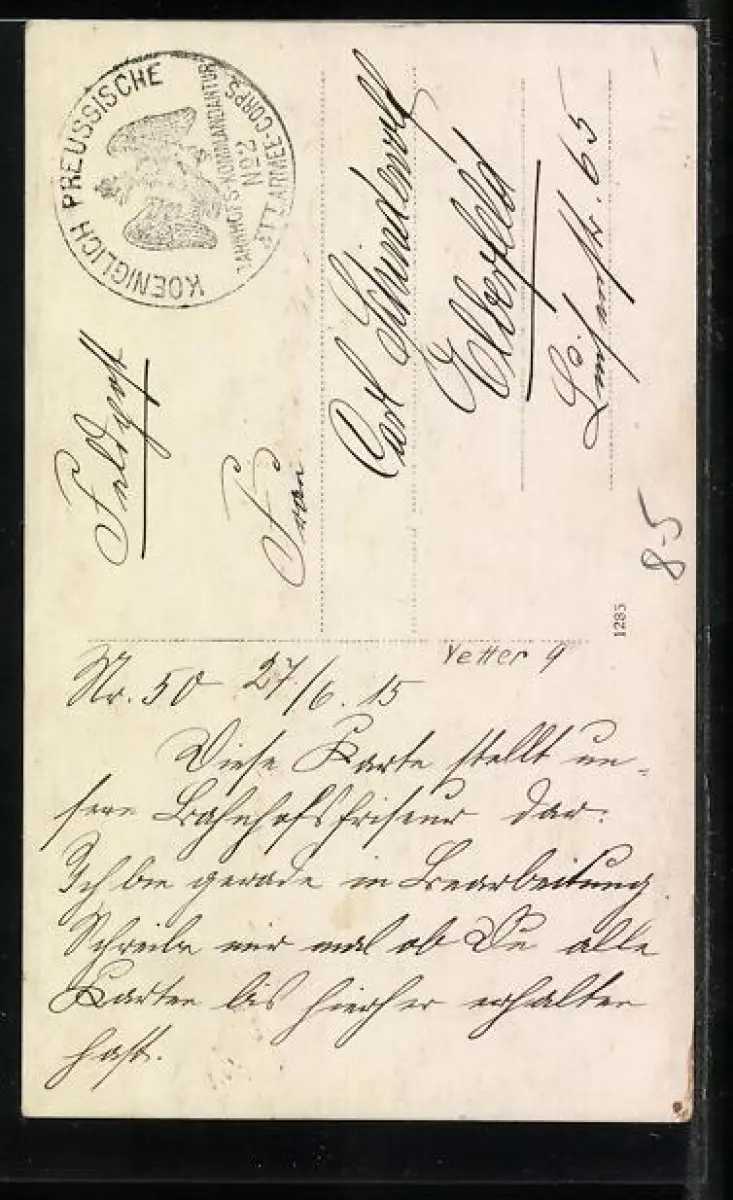 KOENIGLICH PREUSSISCHE
BAHNHOFS-KOMMANDANTUR
No 2
ARMEE-CORPS
Feldpost
Frau
Carl Schindewolf
Elberfeld
Luisenstr. 65
8-5
1285
Vetter 9
Nr. 50 27/6. 15
Diese Karte stellt un-
sern Bahnhofsfriseur dar.
Ich bin gerade in Bearbeitung.
Schreibe mir mal ob Du alle
Karten bis hierher erhalten
hast.